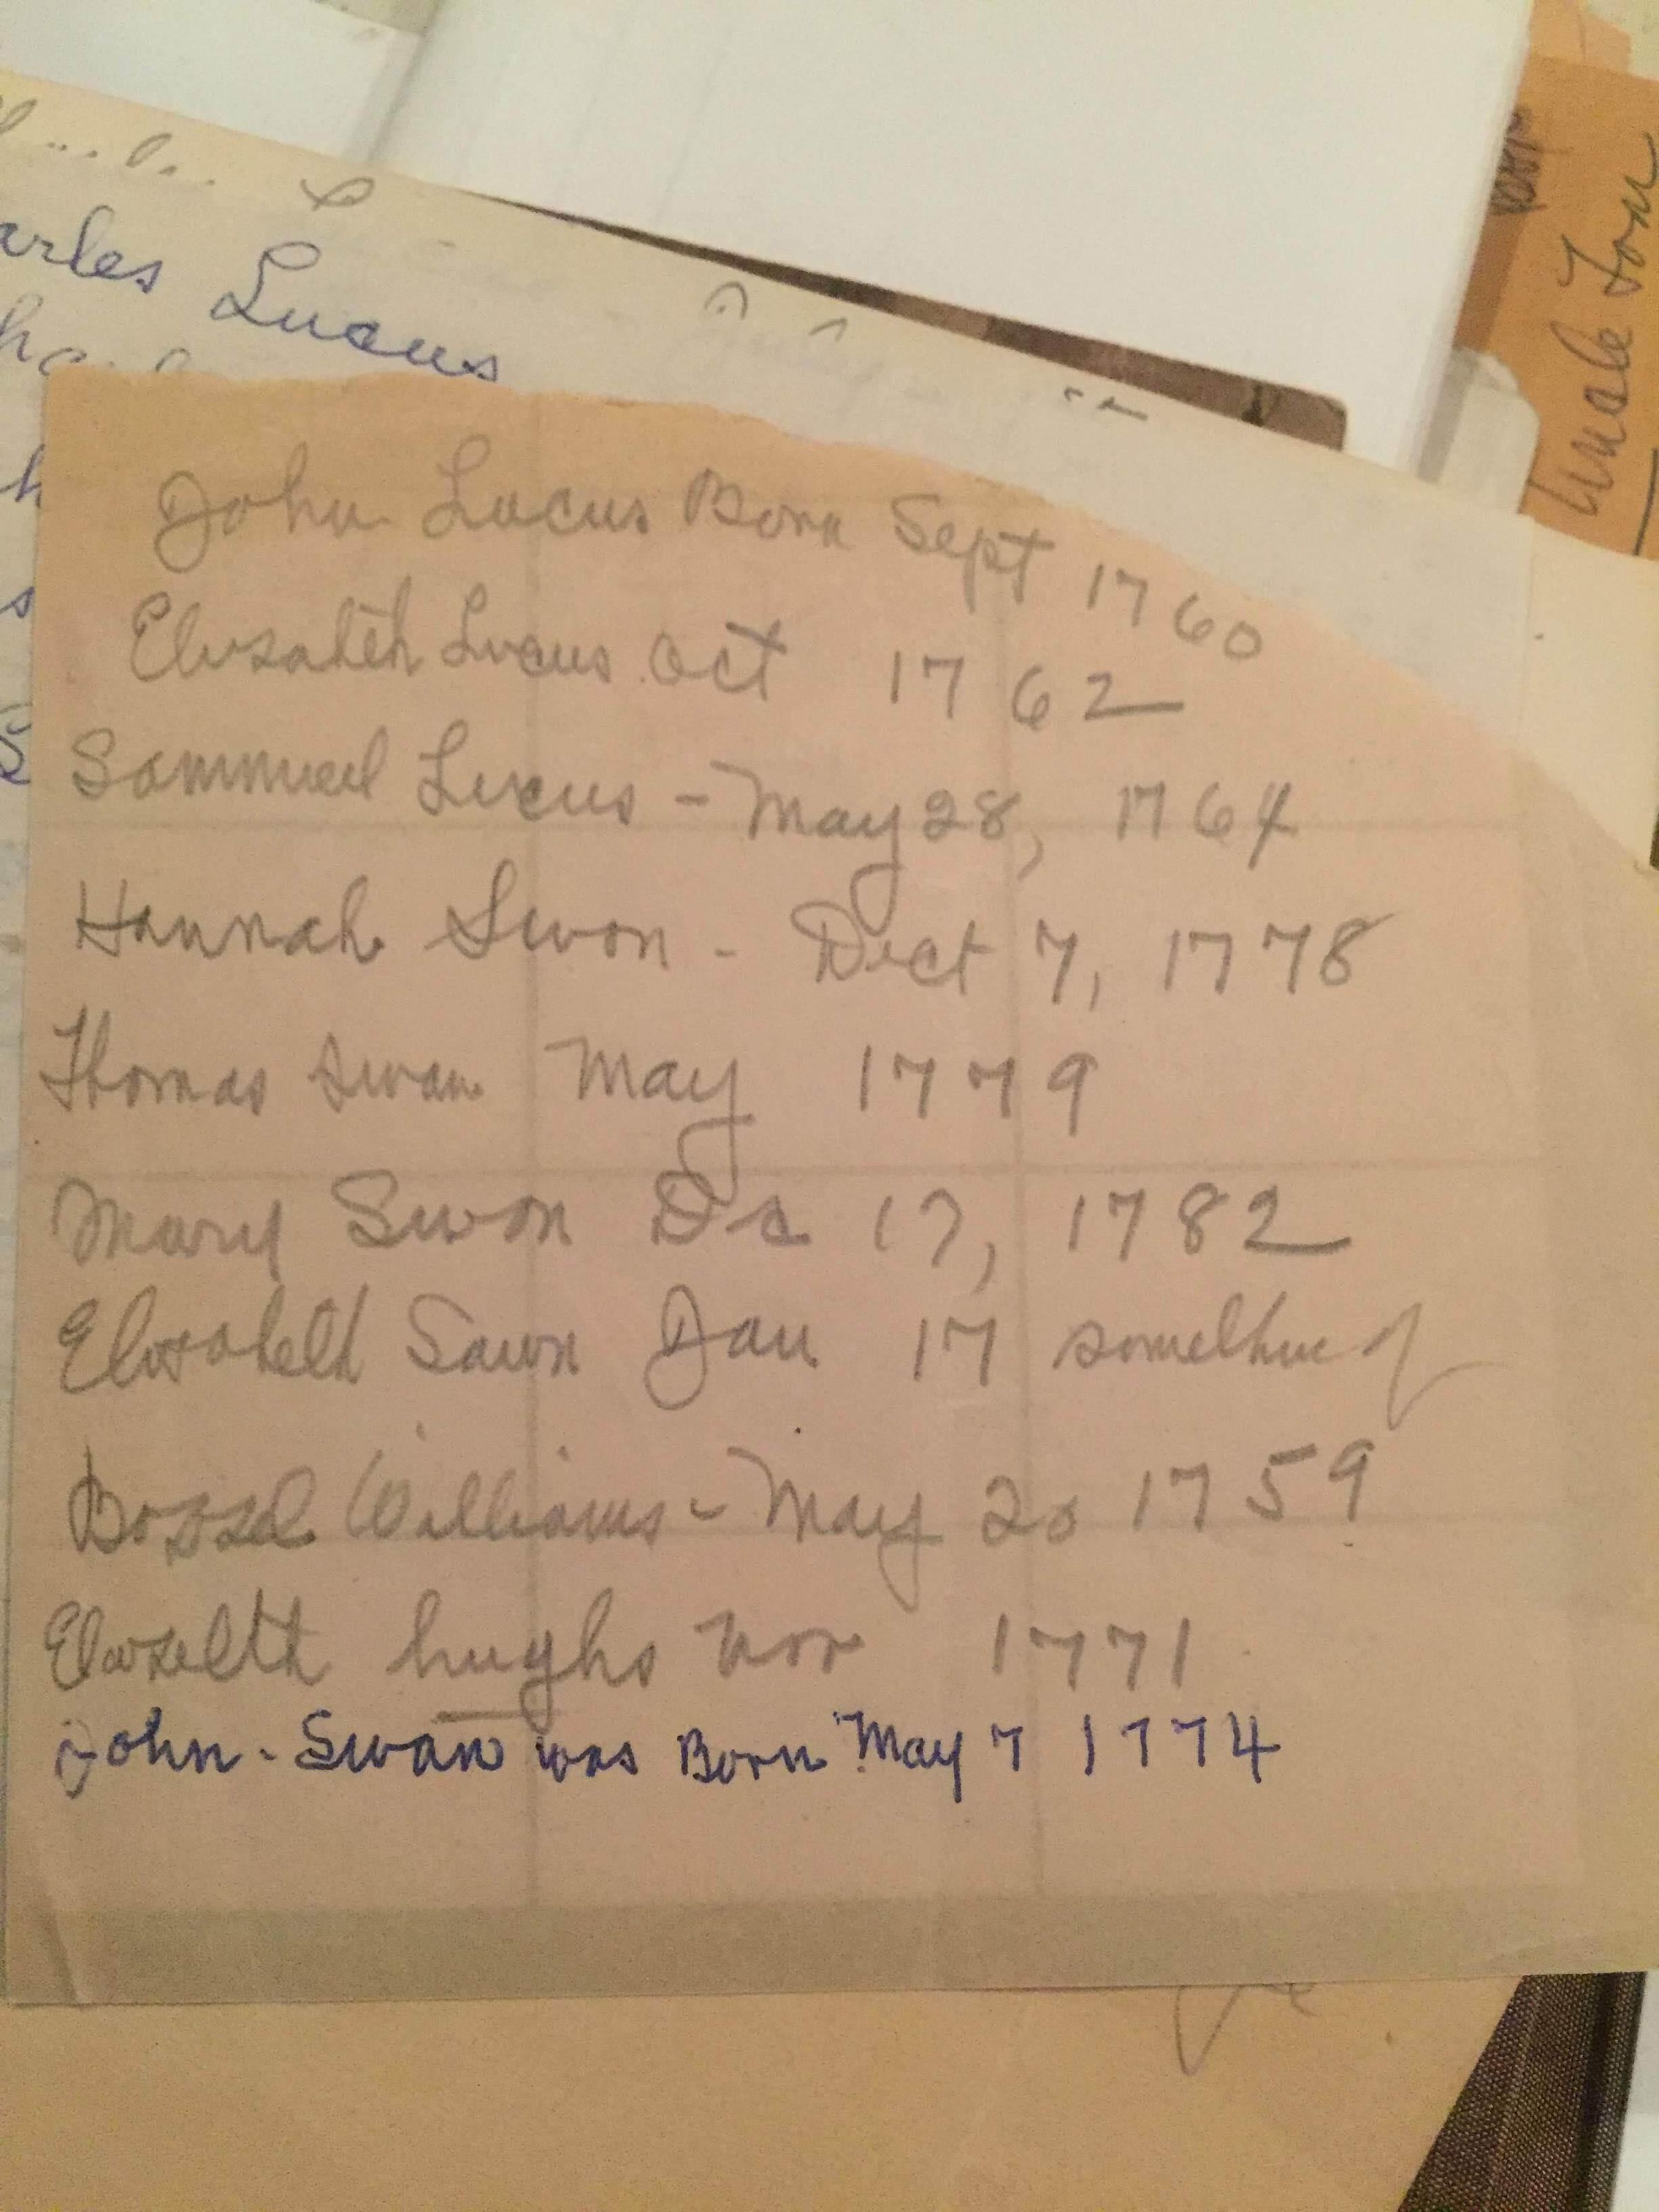 arles Lucus
John Lucus Born Sept 1760
Elizabeth Lucus Oct 1762
Sammuel Lucus - May 28, 1764
Hannah Swon - Dect 7, 1778
Thomas Swan May 1779
Mary Swon Dc 17, 1782
Elizabeth Sawn Jan 17 something
Williams - May 20 1759
hughs Nov 1771
John - Swan was Born May 7 1774